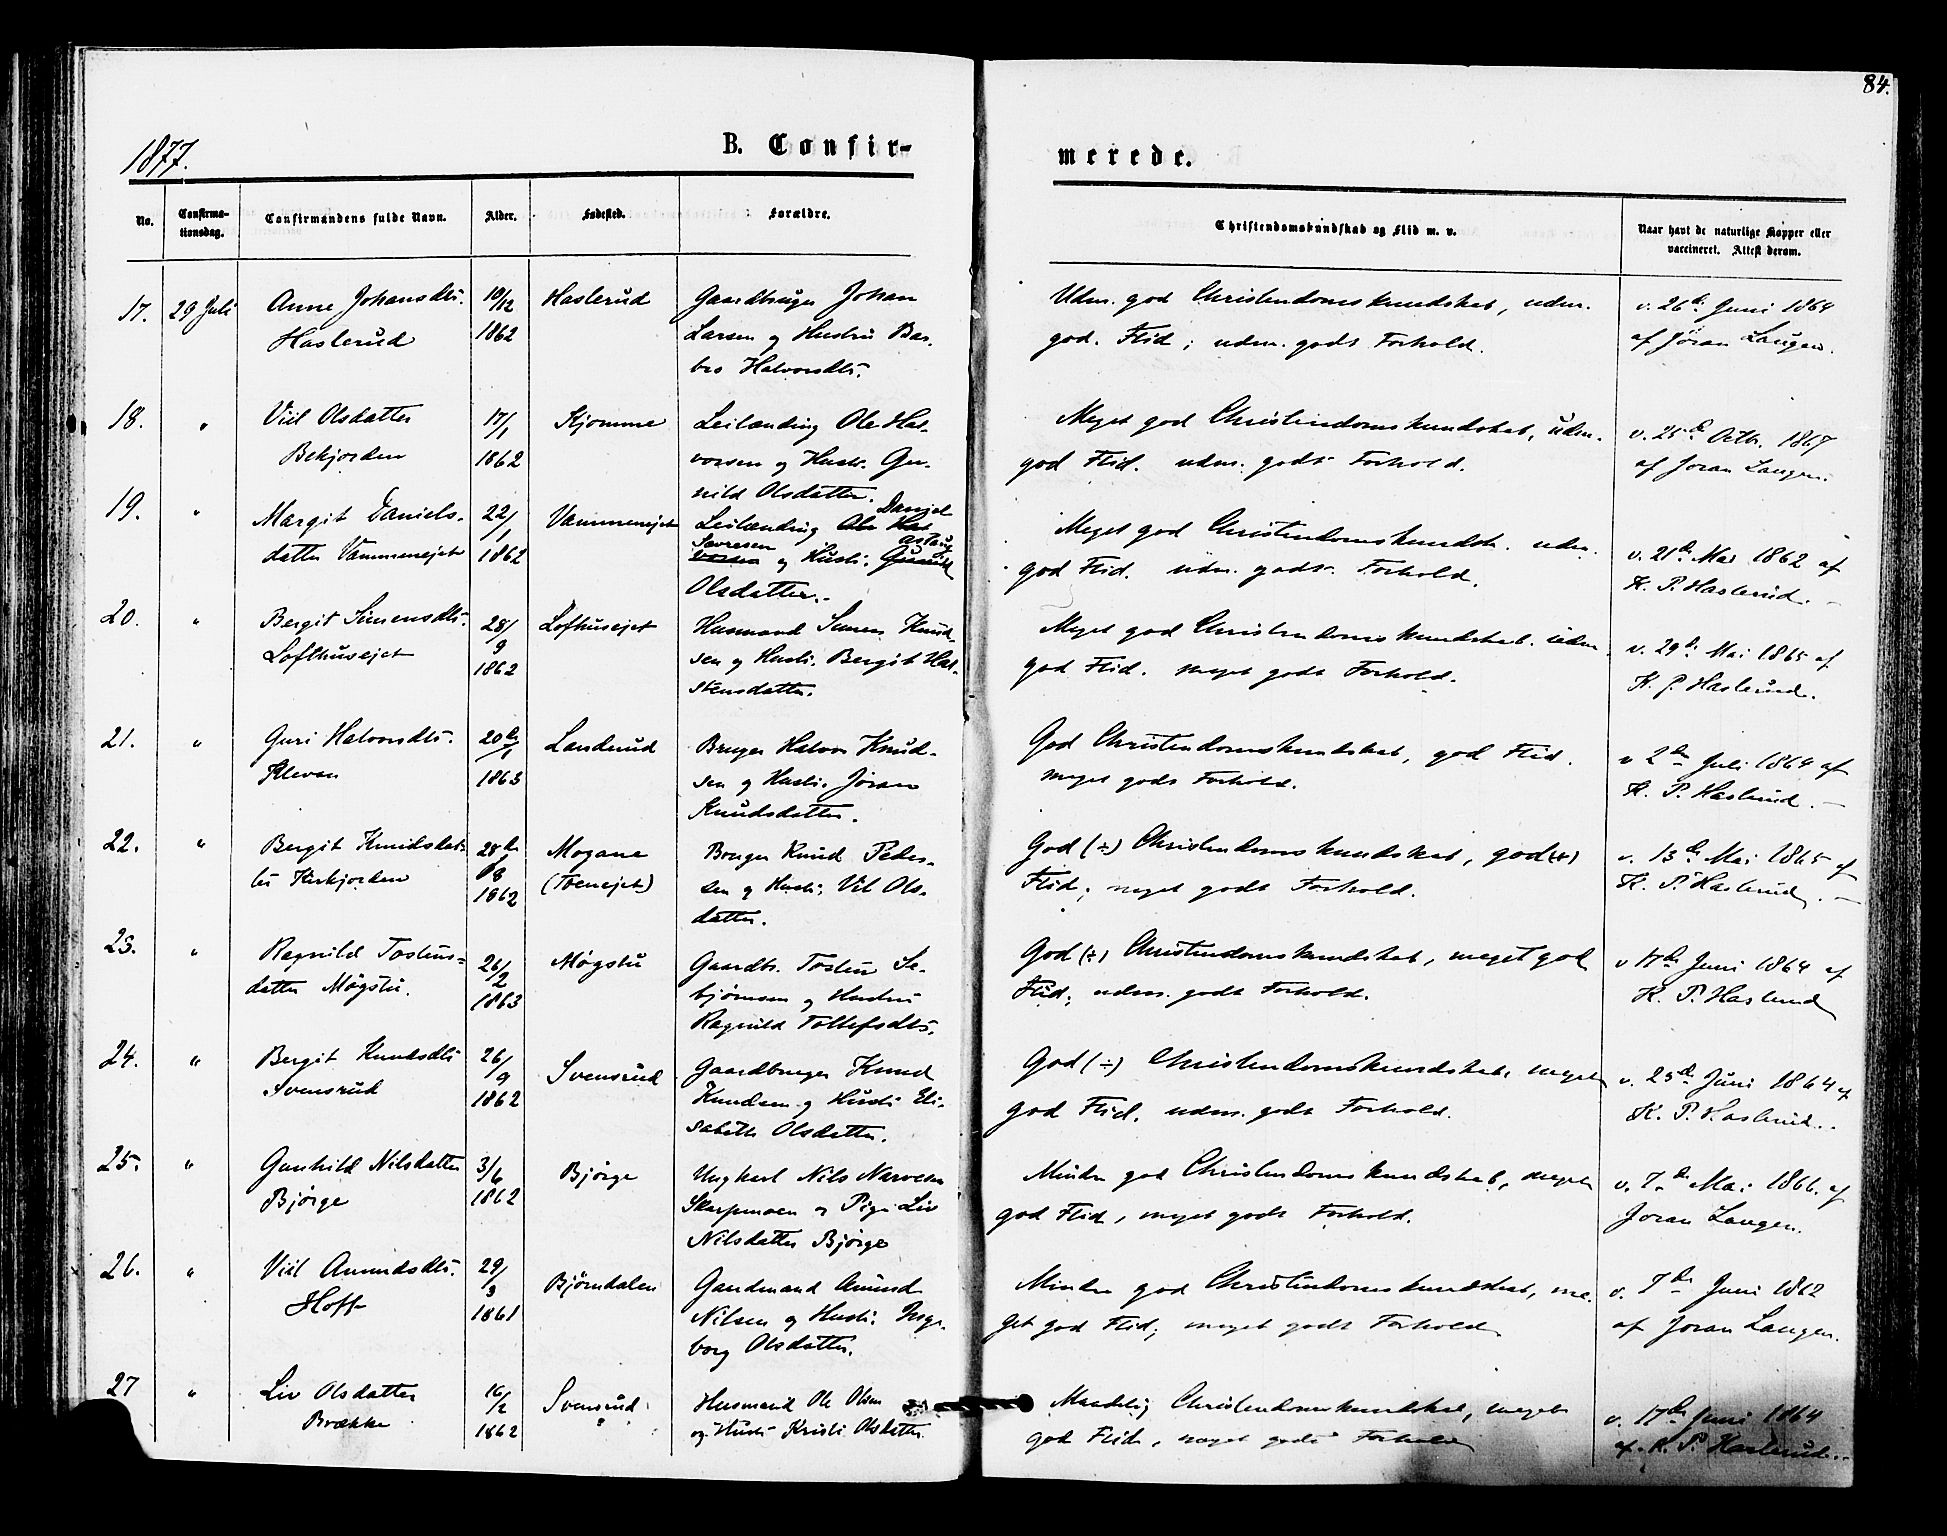 84.
1877.
B. Confir-
merede.
No.
Confirma-
tionsdag.
Confirmandens fulde Navn.
Alder.
Fødested.
Forældre.
Christendomskundskab og Flid m. v.
Naar havt de naturlige Kopper eller
vaccineret. Attest derom.
17. 29 Juli Anne Johansdtr. 10/12 Haslerud Gaardbruger Johan
Haslerud 1862 Larsen og Hustru Bar-
bro Halvorsdtr.
Udm. god Christendomskundskab, udm.
god. Flid; udm. godt Forhold.
v. 26de Juni 1864
af Jöran Laugen.
18. " Viil Olsdatter 17/1 Kjomme Leilænding Ole Hal-
Bekjorden 1862 vorsen og Hustr. Gu-
nild Olsdatter.
Meget god Christendomskundskab, udm.
god Flid. udm. godt Forhold.
v. 25de Octb. 1867
af Joran Laugen.
19. " Margit Daniels- 22/1 Vammenejet Leilænding Ole Hal Danjel
datter Vammenejet 1862 vorsen Sævresen og Hustr. Gunild Aslaug
Olsdatter.
Meget god Christendomskundsk. udm.
god Flid. udm. godt Forhold.
v. 21de Mai 1862 af
K. P. Haslerud.
20. " Bergit Simensdtr. 28/9 Lofthusejet Husmand Simen Knud-
Lofthusejet 1862 sen og Hustr. Bergit Hal-
stensdatter.
Meget god Christendomskundskab. udm.
god Flid. meget godt Forhold.
v. 29de Mai 1865 af
K. P. Haslerud.
21. " Guri Halvorsdtr. 20de/1 Landerud Bruger Halvor Knud-
Klevan 1863 sen og Hustr. Jöran
Knudsdatter.
God Christendomskundskab, god Flid.
meget godt Forhold.
v 2den Juli 1864 af
K. P. Haslerud.
22. " Bergit Knudsdat- 28de/8 Mogane Bruger Knud Peder-
ter 1862 (Tvenejet) sen og Hustr. Vil Ols-
datter.
God (÷) Christendomskundskab, god (+)
Flid; meget godt Forhold.
v. 13de Mai 1865 af
K. P. Haslerud.
23. " Ragnild Tostens- 26/2 Møgstu Gaardb. Tosten Se-
datter Møgstu. 1863 bjørnsen og Hustru
Ragnild Tollefsdtr.
God (÷) Christendomskundskab, meget god
Flid; udm. godt Forhold.
v 17de Juni 1864 af
K. P. Haslerud
24. " Bergit Knudsdtr 26/9 Svensrud Gaardbruger Knud
Svensrud 1862 Knudsen og Hustr. Eli-
sabeth Olsdatter.
God (÷) Christendomskundskab, meget
god Flid. udm. godt Forhold.
v. 25de Juni 1864 af
K. P. Haslerud.
25. " Gunhild Nilsdatter 3/6 Bjørge Ungkarl Nils Narvesen
Bjørge 1862 Skarpmoen og Pige Liv
Nilsdatter Bjørge
Mindre god Christendomskundskab, meget
god Flid, meget godt Forhold.
v. 7de Mai 1866. af
Joran Laugen.
26. " Viil Amundsdtr. 29/3 Bjørndalen Gaardmand Amund
Hoff 1861 Nilsen og Hustr. Inge-
borg Olsdatter.
Mindre god Christendomskundskab, me-
get god Flid; meget godt Forhold
v. 7de Juni 1862
af Joran Laugen.
27 " Liv Olsdatter 16/2 Svensrud Husmand Ole Olsen
Brække 1862 " og Hustr Kristi Olsdatter.
Maadelig Christendomskundskab, meget
god Flid, meget godt Forhold
v. 17de Juni 1864
af K. P. Haslerud.